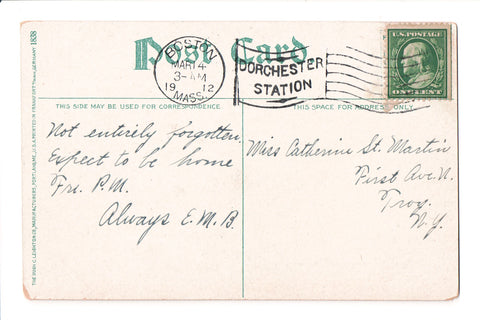 Post Card
BOSTON
MAR 14
3-AM
1912
MASS.
DORCHESTER
STATION
U.S. POSTAGE
ONE CENT
THIS SIDE MAY BE USED FOR CORRESPONDENCE.
THIS SPACE FOR ADDRESS ONLY.
Not entirely forgotten
Expect to be home
Fri. P.M.
Always E.M.B.
Miss Catherine St. Martin
First Ave. N.
Troy
N.Y.
THE HUGH C. LEIGHTON CO., MANUFACTURERS, PORTLAND, ME., U.S.A. PRINTED IN FRANKFORT GERMANY 1838